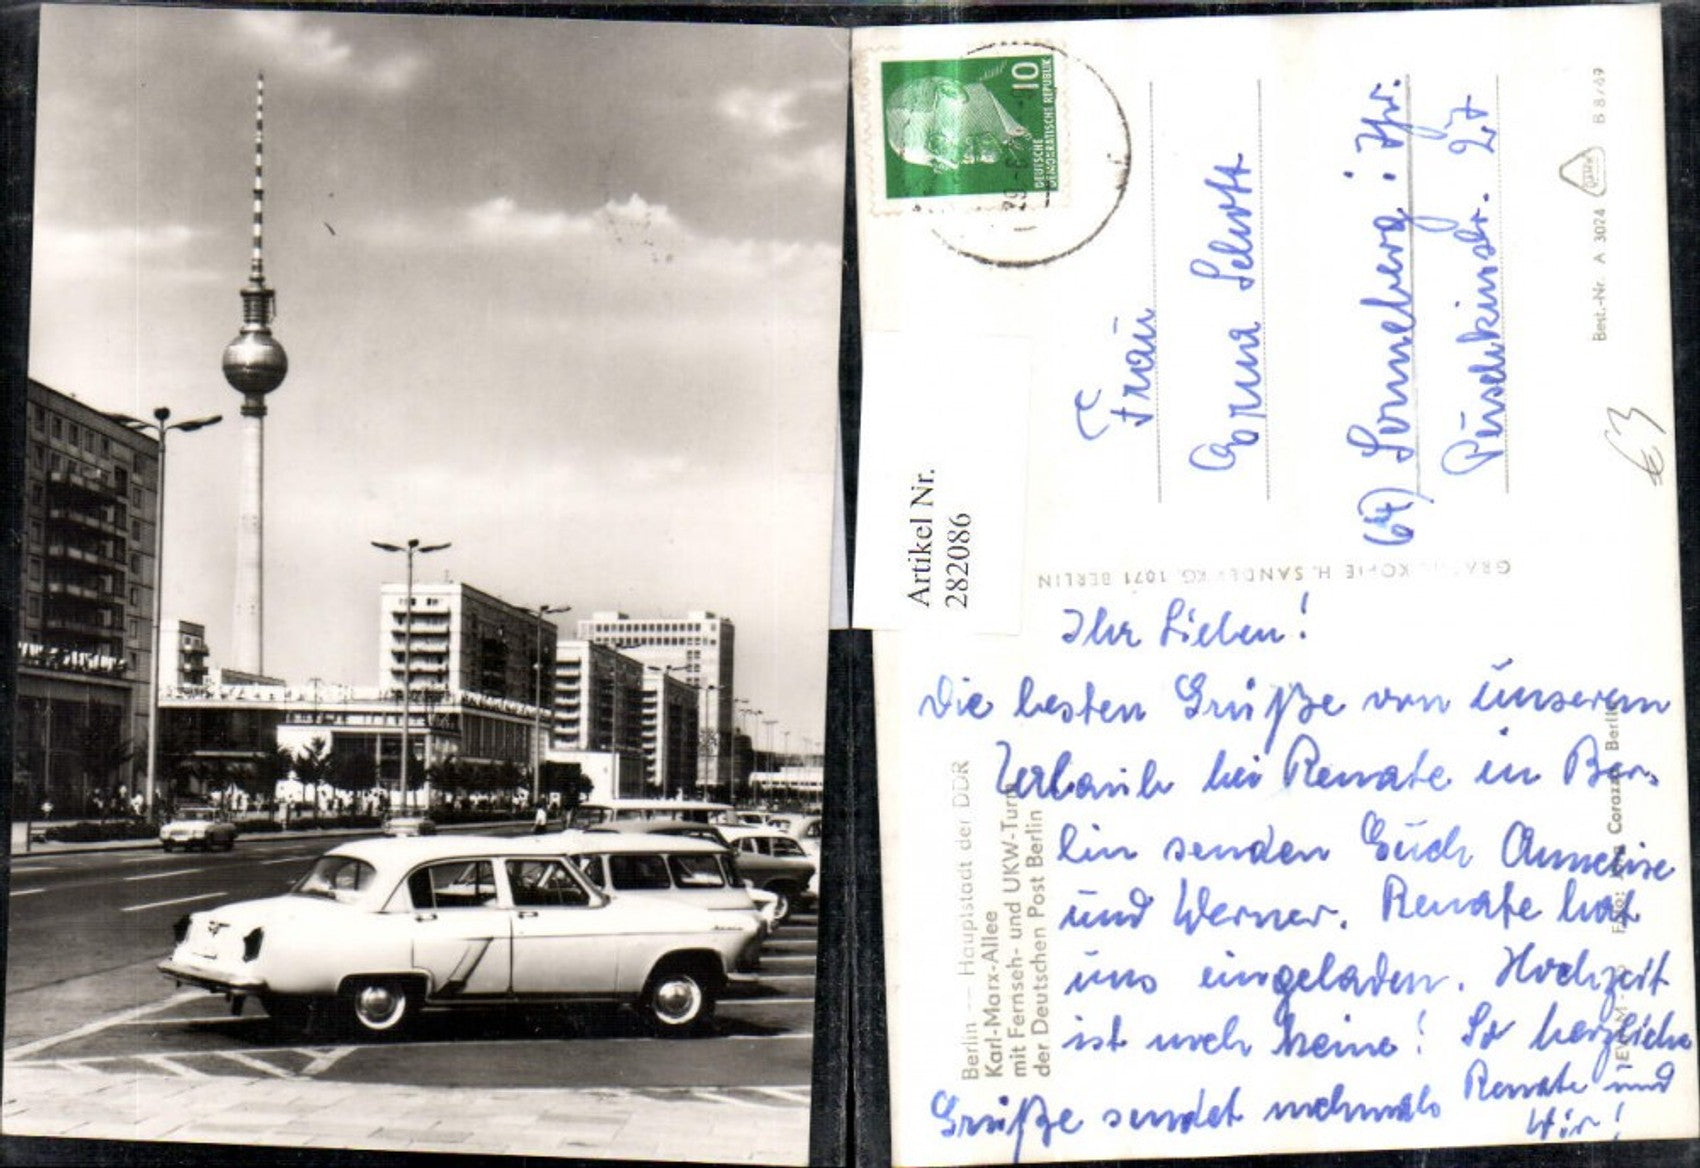 10
DEUTSCHE
DEMOKRATISCHE REPUBLIK
Frau
Erna Schott
(64) Sonneberg i. Thür.
Puschkinstr. 27
Best.-Nr. A 3024
B 8/69
€3
Artikel Nr.
282086
H. SANDER KG, 1071 BERLIN
Ihr Lieben!
Die besten Grüße von unserem
Urlaub bei Renate in Ber-
lin senden Euch Anneliese
und Werner. Renate hat
uns eingeladen. Hochzeit
ist noch keine! So herzliche
Grüße sendet nochmals Renate und
Wir!
Berlin — Hauptstadt der DDR
Karl-Marx-Allee
mit Fernseh- und UKW-Turm
der Deutschen Post Berlin
Corazza, Berlin